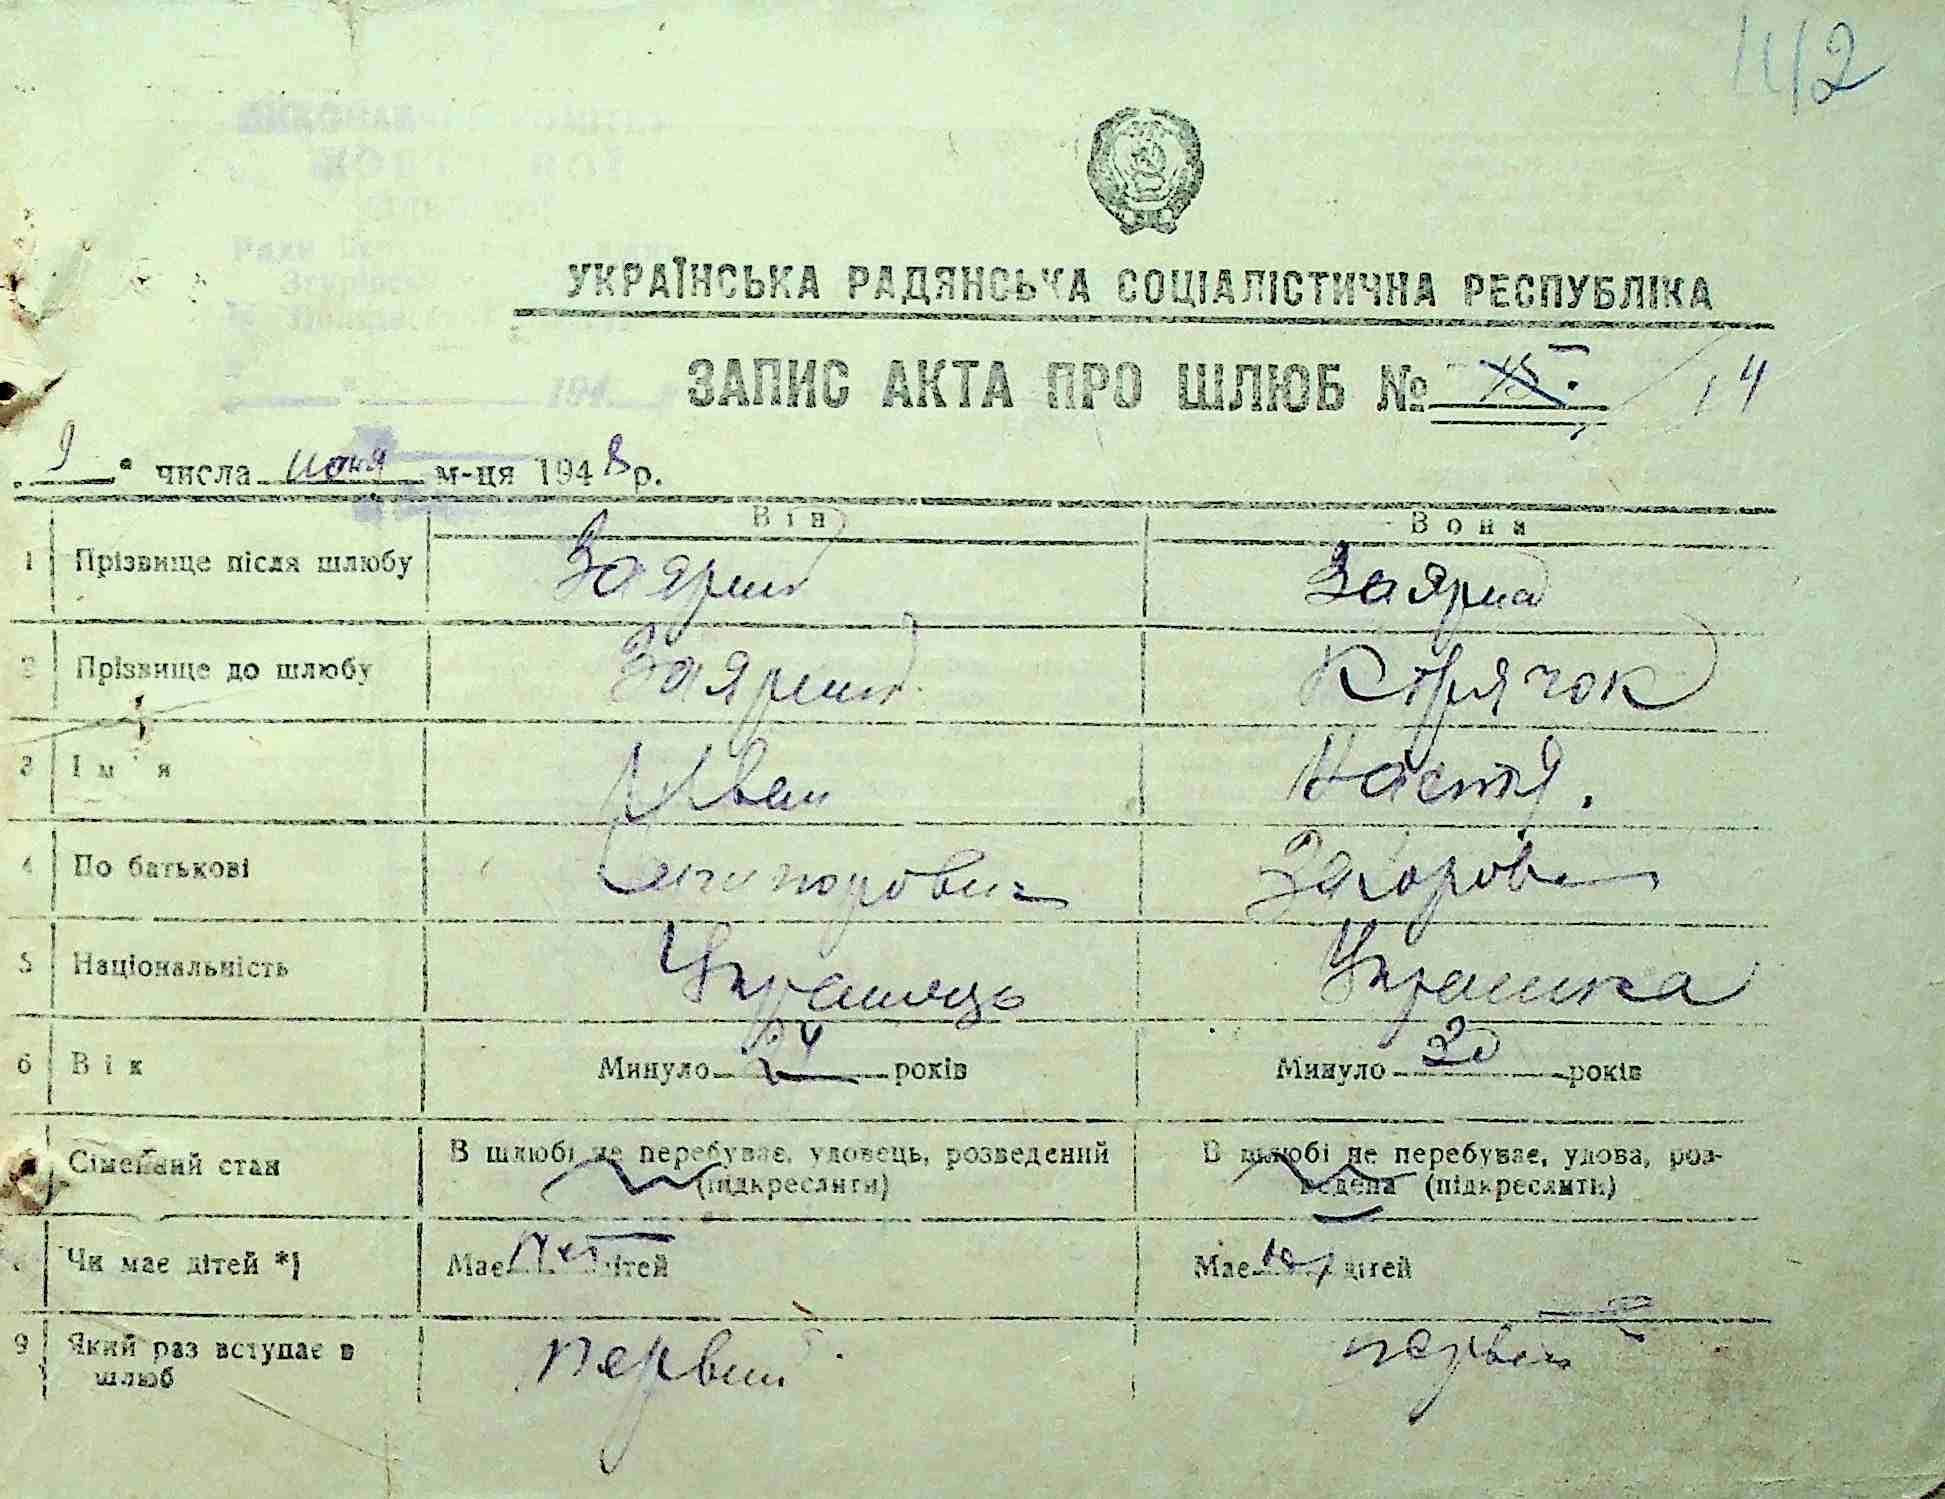 112
УКРАЇНСЬКА РАДЯНСЬКА СОЦІАЛІСТИЧНА РЕСПУБЛІКА
ЗАПИС АКТА ПРО ШЛЮБ № 14
"9" числа июня м-ця 1948 р.
Він Вона
1 Прізвище після шлюбу Заярний Заярна
2 Прізвище до шлюбу Заярний Корячок
3 Ім'я Іван Настя.
4 По батькові Захаровна
5 Національність Українець Українка
6 Вік Минуло 24 років Минуло 20 років
Сімейний стан В шлюбі не перебуває, удовець, розведений В шлюбі не перебуває, удова, роз-
(підкреслити) ведена (підкреслити)
Чи має дітей *) Має дітей Має дітей
9 Який раз вступає в первий первий
шлюб